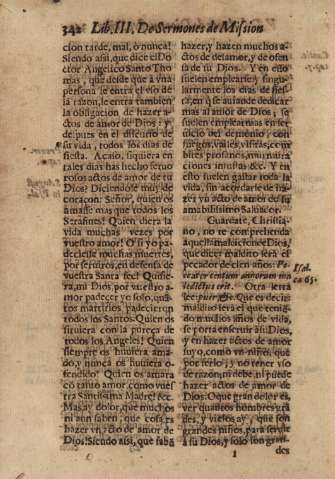 342 Lib. III. De Sermones de Mission
cion tarde, mal, ò nunca!
Siendo assi, que dice el Do
ctor Angelico Santo Tho
mas, que desde que à vna
persona le entra el vso de
la razon, le entra tambien
la obligacion de hazer a-
ctos de amor de Dios: y
despues en el discurso de
su vida, todos los dias de
fiesta. Acaso, siquiera en
tales dias has hecho fervo
rosos actos de amor de tu
Dios? Diciendole muy de
coraçon: Señor, quien os
amasse mas que todos los
Serafines! Quien diera la
vida muchas vezes por
vuestro amor! O si yo pa-
deciesse muchas muertes,
por serviros, en defensa de
vuestra Santa fee! Quisie-
ra, mi Dios, por vuestro a-
mor padecer yo solo, quã-
tos martirios padecieron
todos los Santos. Quien os
sirviera con la pureça de
todos los Angeles! Quien
siempre os huviera ama-
do, y nunca os huviera o-
fendido! Quien os amara
cõ tanto amor, como vues
tra Santissima Madre! &c.
Mas ay dolor, que muchos
ni aun saben, que cosa es
hazer vn acto de amor de
Dios! Siendo assi, que sabẽ
hazer, y hazen muchos a-
ctos de desamor, y de ofen
sa de su Dios. Y en esto
suelen emplearse, y singu-
larmente los dias de fies-
ta, en q̃ se avian de dedicar
mas al amor de Dios; se
suelen emplear mas en ser
vicio del demonio, con
juegos, vailes, visitas, com
bites profanos, murmura
ciones injustas &c. Y en
esto suelen gastar toda la
vida, sin acordarse de ha-
zer vn acto de amor de su
amabilissimo Salvador.
Guardate, Christia-
no, no te comprehenda
aquella maldicion de Dios,
que dice: maldito serà el
pecador de cien años: Pe-
ccator centum annorum ma
ledictus erit. Otra letra
lee: puer, &c. Que es decir:
maldito serà el que tenien
do muchos años de vida,
se porta en servir à su Dios,
y en hazer actos de amor
suyo, como vn niño; que
por serlo, y no tener vso
de razon, ni debe, ni puede
hazer actos de amor de
Dios: O que gran dolor es,
ver quantos hombres grã
des, y viejos ay, que son
grandes niños, para servir
à su Dios, y solo son gran-
des
Isai.
ca. 65.